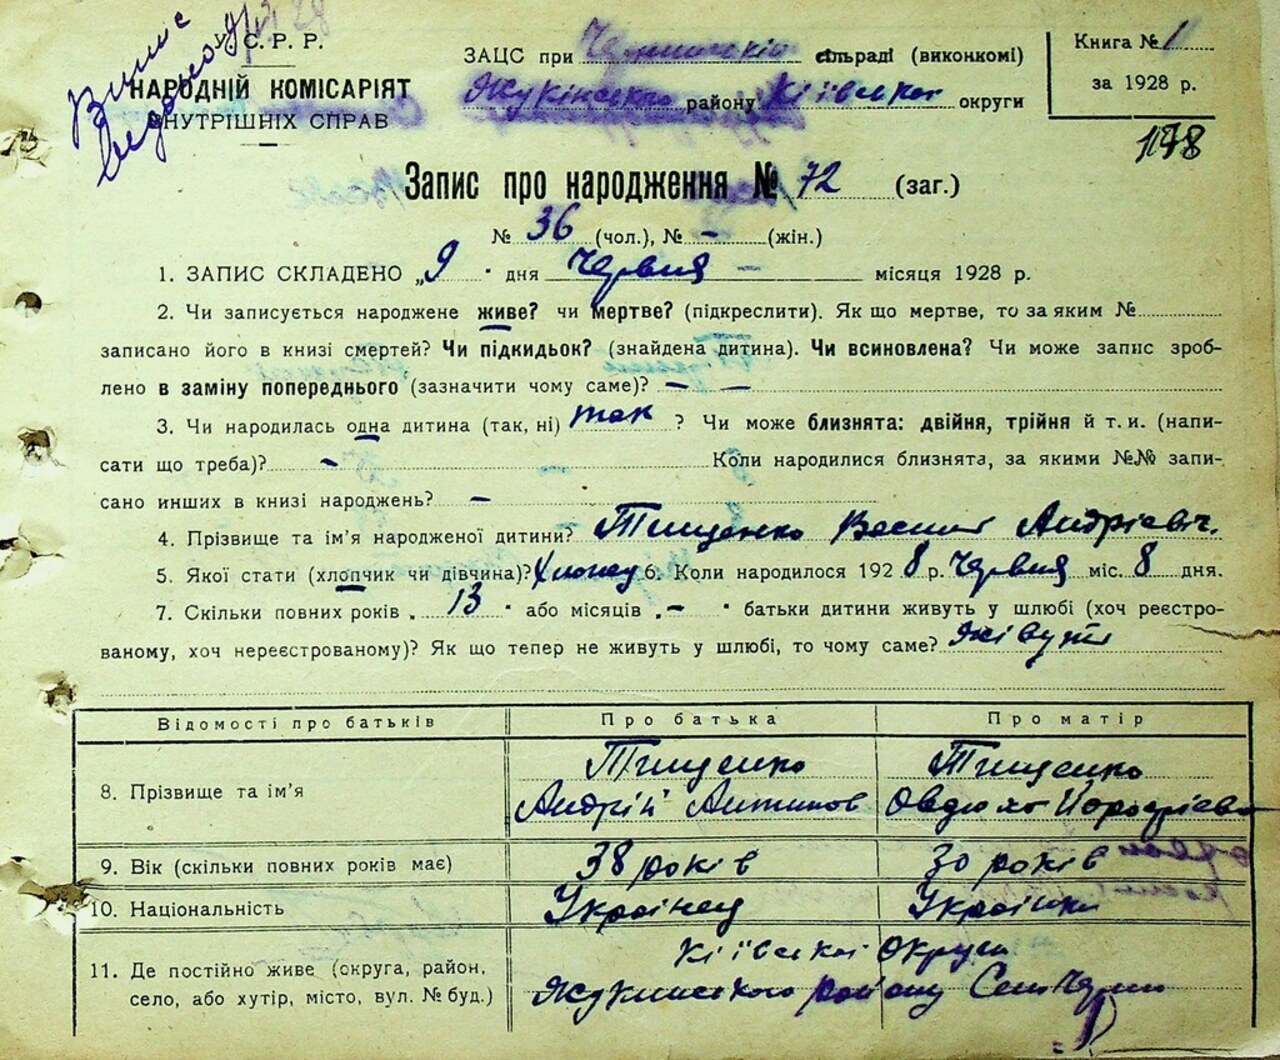 У. С. Р. Р.
НАРОДНІЙ КОМІСАРІЯТ
ВНУТРІШНІХ СПРАВ
ЗАЦС при сільраді (виконкомі)
Жукінського району Київської округи
Книга № 1
за 1928 р.
178
Запис про народження № 72 (заг.)
№ 36 (чол.), № - (жін.)
1. ЗАПИС СКЛАДЕНО „9" дня Червня - місяця 1928 р.
2. Чи записується народжене живе? чи мертве? (підкреслити). Як що мертве, то за яким №
записано його в книзі смертей? Чи підкидьок? (знайдена дитина). Чи всиновлена? Чи може запис зроб-
лено в заміну попереднього (зазначити чому саме)? - -
3. Чи народилась одна дитина (так, ні) так ? Чи може близнята: двійня, трійня й т. и. (напи-
сати що треба)? - Коли народилися близнята, за якими №№ запи-
сано инших в книзі народжень? -
4. Прізвище та ім'я народженої дитини? Тищенко Василь Андрієвіч.
5. Якої стати (хлопчик чи дівчина)? 6. Коли народилося 1928 р. Червня міс. 8 дня.
7. Скільки повних років „13" або місяців „-" батьки дитини живуть у шлюбі (хоч реєстро-
ваному, хоч нереєстрованому)? Як що тепер не живуть у шлюбі, то чому саме? Живут
Відомості про батьків Про батька Про матір
8. Прізвище та ім'я Тищенко Андрій Антипов Тищенко
9. Вік (скільки повних років має) 38 років 30 років
10. Національність Українец Українка
11. Де постійно живе (округа, район, Кіівської Округи
село, або хутір, місто, вул. № буд.) Жукинського району